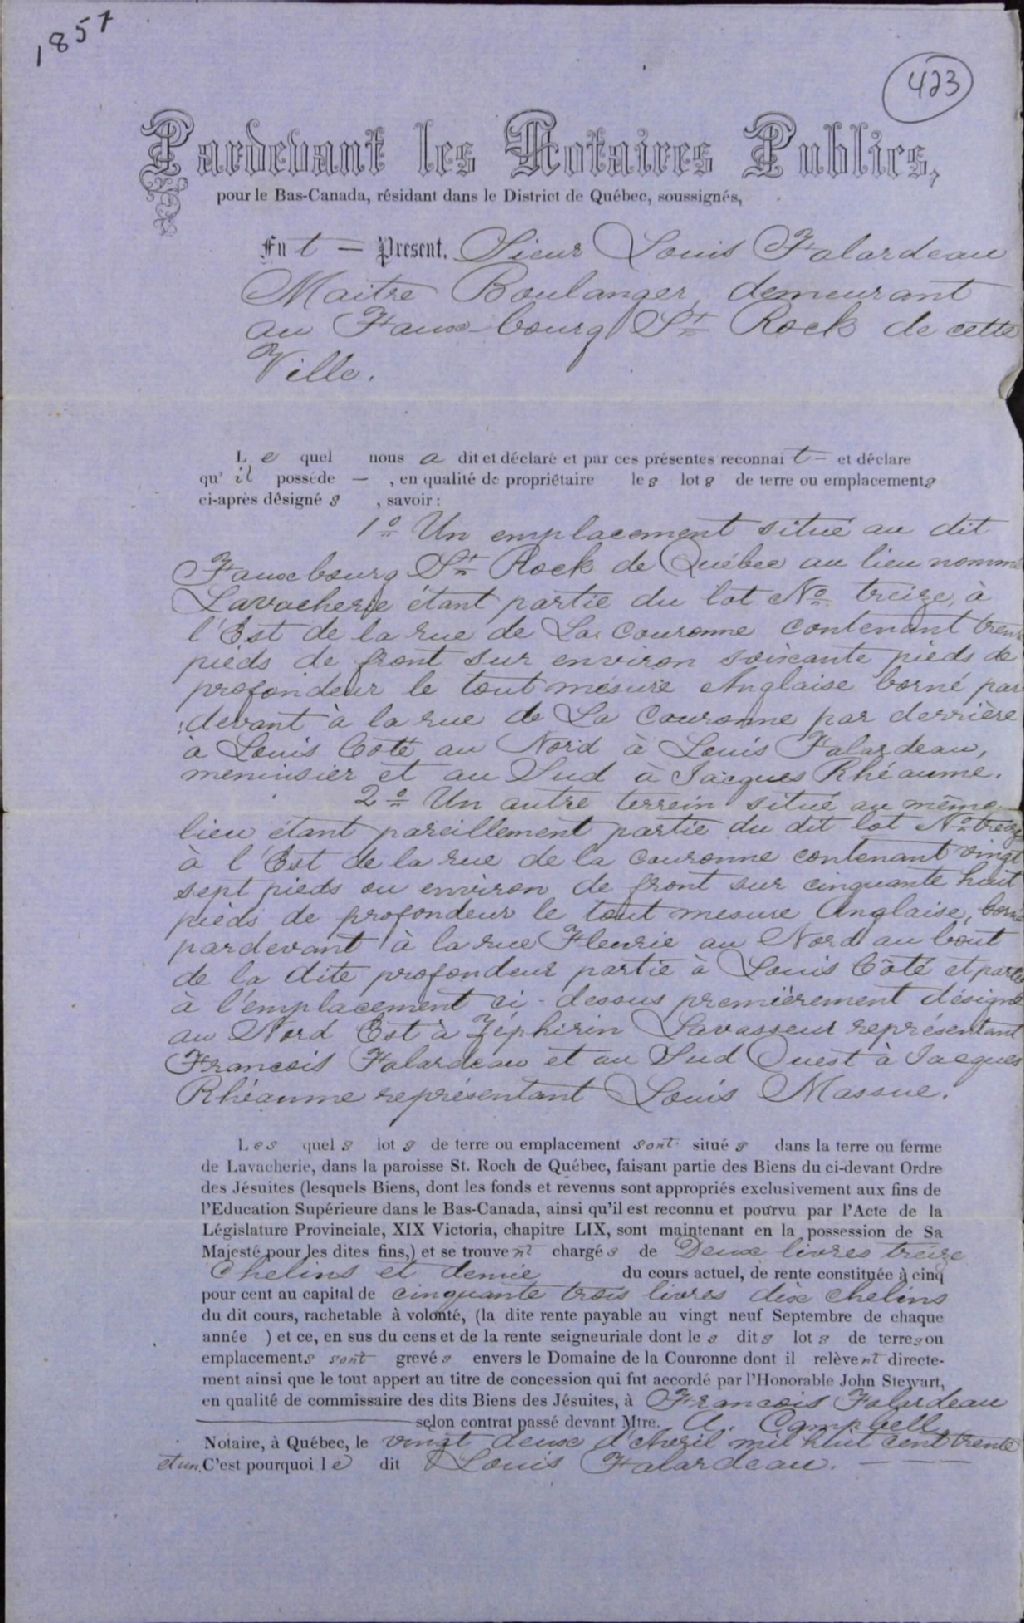 1857
423
Pardevant les Notaires Publics,
pour le Bas-Canada, résidant dans le District de Québec, soussignés,
Fut — Present, Sieur Louis Falardeau
Maitre Boulanger, demeurant
au Fauxbourg St Rock de cette
Ville.
Le quel nous a dit et déclaré et par ces présentes reconnait — et déclare
qu'il possède — , en qualité de propriétaire les lots de terre ou emplacements
ci-après désignés , savoir :
1o Un emplacement situé au dit
Fauxbourg St Rock de Québec au lieu nommé
Lavacherie étant partie du lot No treize, à
l'Est de la rue de La Couronne contenant trente
pieds de front sur environ soixante pieds de
profondeur le tout mesure Anglaise borné par
devant à la rue de La Couronne par derrière
à Louis Coté au Nord à Louis Falardeau,
menuisier et au Sud à Jacques Rhéaume.
2o Un autre terrein situé au même
lieu étant pareillement partie du dit lot No treize
à l'Est de la rue de la Couronne contenant vingt
sept pieds ou environ de front sur cinquante huit
pieds de profondeur le tout mesure Anglaise, borné
pardevant à la rue Fleurie au Nord au bout
de la dite profondeur partie à Louis Côté et partie
à l'emplacement ci-dessus premièrement désigné
au Nord Est à Zéphirin Lavasseur représentant
Francois Falardeau et au Sud Ouest à Jacques
Rhéaume représentant Louis Massue.
Les quels lots de terre ou emplacement sont situés dans la terre ou ferme
de Lavacherie, dans la paroisse St. Roch de Québec, faisant partie des Biens du ci-devant Ordre
des Jésuites (lesquels Biens, dont les fonds et revenus sont appropriés exclusivement aux fins de
l'Education Supérieure dans le Bas-Canada, ainsi qu'il est reconnu et pourvu par l'Acte de la
Législature Provinciale, XIX Victoria, chapitre LIX, sont maintenant en la possession de Sa
Majesté pour les dites fins,) et se trouvent chargés de Deux livres treize
Chelins et demie du cours actuel, de rente constituée à cinq
pour cent au capital de cinquante trois livres dix chelins
du dit cours, rachetable à volonté, (la dite rente payable au vingt neuf Septembre de chaque
année ) et ce, en sus du cens et de la rente seigneuriale dont les dits lots de terres ou
emplacements sont grevés envers le Domaine de la Couronne dont il relèvent directe-
ment ainsi que le tout appert au titre de concession qui fut accordé par l'Honorable John Stewart,
en qualité de commissaire des dits Biens des Jésuites, à Francois Falardeau
selon contrat passé devant Mtre. A. Campbell
Notaire, à Québec, le vingt deux d'Avril mil huit cent trente
et un. C'est pourquoi le dit Louis Falardeau. — — —